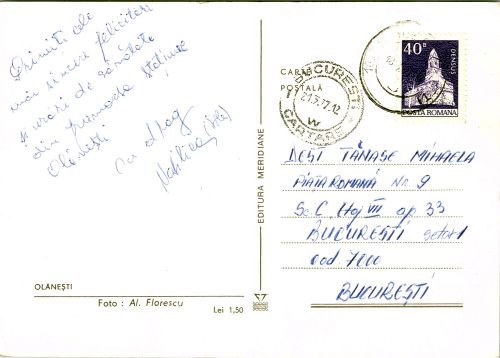 Primiți cele
mai sincere felicitări
și urări de sănătate
din frumoasa stațiune
Olănești
Cu drag
OLĂNEȘTI
Foto : Al. Florescu
Lei 1,50
EDITURA MERIDIANE
CARTE
POȘTALĂ
BUCUREȘTI
21.5.77.12
CARTARE
40B
DENSUȘ
POSTA ROMANA
DEȘI TĂNASE MIHAELA
PIAȚA ROMANĂ Nr 9
Sc. C, Etaj VII ap 33
BUCUREȘTI sector 1
cod 7000
BUCUREȘTI